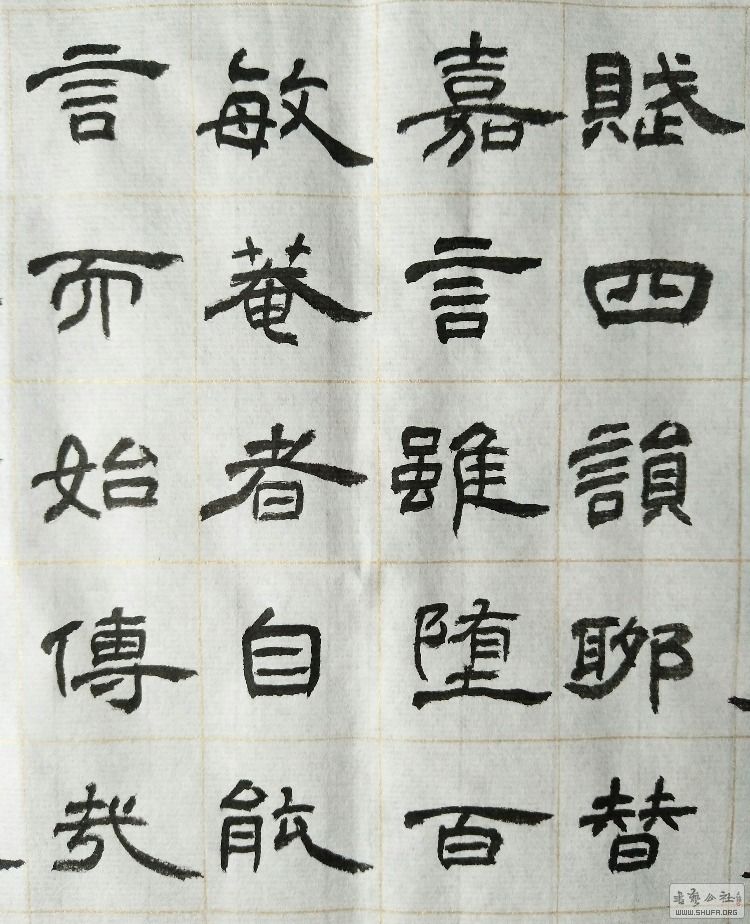 賦四韻聊替
嘉言雖堕百
敏菴者自能
言而始傳
书艺公社
WWW.SHUFA.ORG